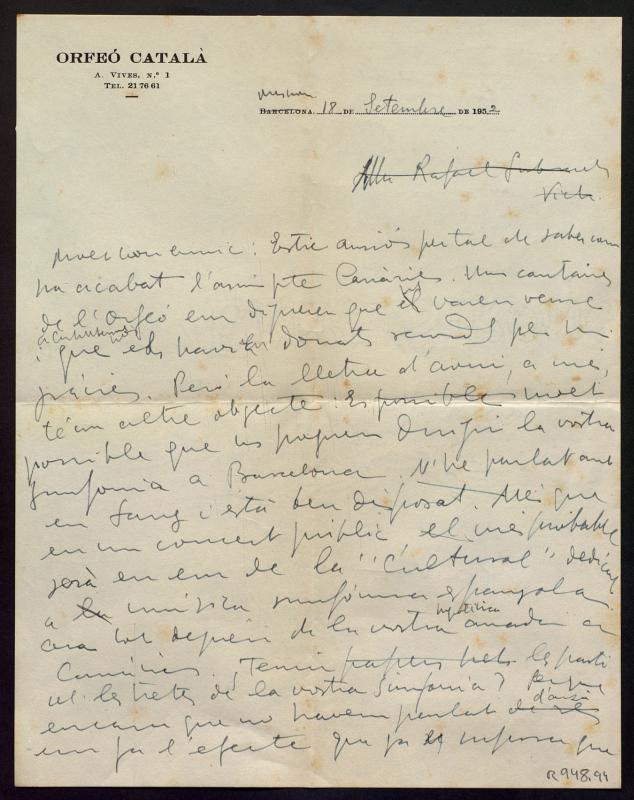 ORFEÓ CATALÀ
A. VIVES, N.º 1
TEL. 21 76 61
BARCELONA, 18 DE Setembre DE 1952
Rafael
Vich
amic: Estic ansiós per tal de saber com
ha acabat l'assumpte Canàries. Uns cantaires
de l'Orfeó em digueren que us varen veure
i que els havien donat records per mi
gràcies. Però la lletra d'avui, a més,
té un altre objecte. Es possible molt
possible que us puguem dirigir la vostra
Simfonia a Barcelona. N'he parlat amb
en i està ben disposat. Més que
en un concert públic el més probable
serà en un de la "Cultural" dedicat
a la música simfònica espanyola i
ara tot depen de la vostra anada a
Canàries. ¿Tenim papers fets les parti
cel·les fetes de la vostra Simfonia? Perque
encara que no havem parlat de res d'això
em fa l'efecte que ja es suposa que
R 948.94